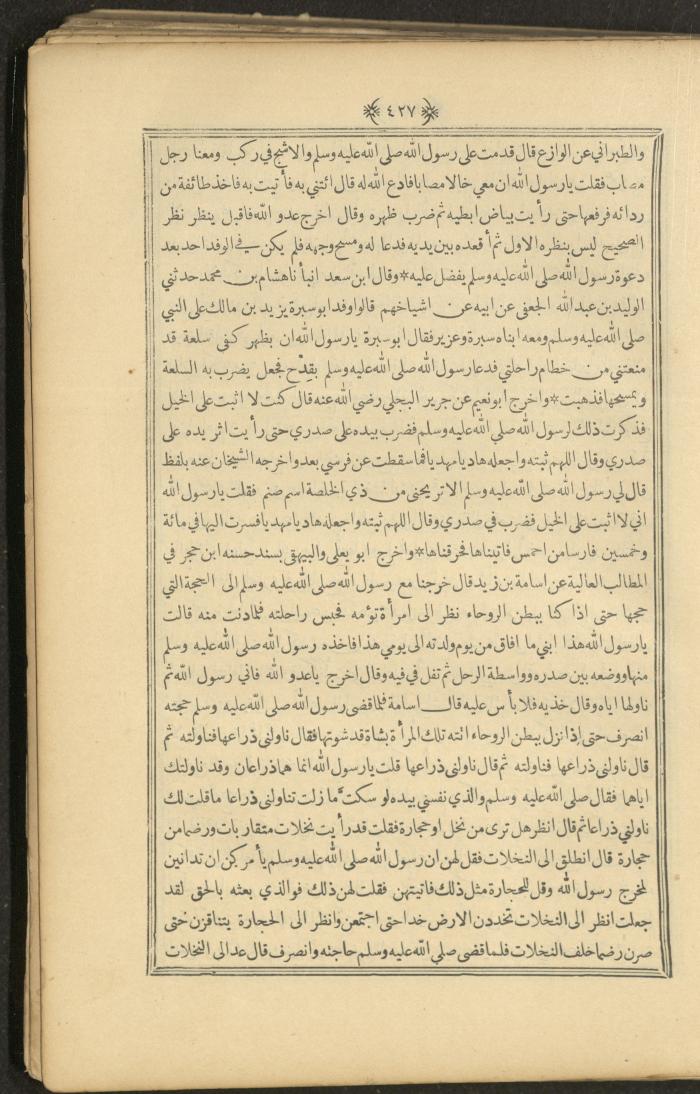 ﴿ ٤٢٧ ﴾
والطبراني عن الوازع قال قدمت على رسول الله صلى الله عليه وسلم والاشج في ركب ومعنا رجل
مصاب فقلت يا رسول الله ان معي خالا مصابا فادع الله له قال ائتني به فأتيت به فاخذ طائفة من
ردائه فرفعها حتى رأيت بياض ابطيه ثم ضرب ظهره وقال اخرج عدو الله فاقبل ينظر نظر
الصحيح ليس بنظره الاول ثم أقعده بين يديه فدعا له ومسح وجهه فلم يكن في الوفد احد بعد
دعوة رسول الله صلى الله عليه وسلم يفضل عليه * وقال ابن سعد انبأ ناهشام بن محمد حدثني
الوليد بن عبد الله الجعفي عن ابيه عن اشياخهم قالوا وفد ابو سبرة يزيد بن مالك على النبي
صلى الله عليه وسلم ومعه ابناه سبرة وعزير فقال ابو سبرة يا رسول الله ان بظهر كفى سلعة قد
منعتني من خطام راحلتي فدعا رسول الله صلى الله عليه وسلم بقدح فجعل يضرب به السلعة
ويمسحها فذهبت * واخرج ابو نعيم عن جرير البجلي رضي الله عنه قال كنت لا اثبت على الخيل
فذكرت ذلك لرسول الله صلى الله عليه وسلم فضرب بيده على صدري حتى رأيت اثر يده على
صدري وقال اللهم ثبته واجعله هاديا مهديا فما سقطت عن فرسي بعد واخرجه الشيخان عنه بلفظ
قال لي رسول الله صلى الله عليه وسلم الا تريحنى من ذي الخلصة اسم صنم فقلت يا رسول الله
اني لا اثبت على الخيل فضرب في صدري وقال اللهم ثبته واجعله هاديا مهديا فسرت اليها في مائة
وخمسين فارسا من احمس فاتيناها فحرقناها * واخرج ابو يعلى والبيهقي بسند حسنه ابن حجر في
المطالب العالية عن اسامة بن زيد قال خرجنا مع رسول الله صلى الله عليه وسلم الى الحجة التي
حجها حتى اذا كنا ببطن الروحاء نظر الى امرأة تؤمه فحبس راحلته فلما دنت منه قالت
يا رسول الله هذا ابني ما افاق من يوم ولدته الى يومي هذا فاخذه رسول الله صلى الله عليه وسلم
منها ووضعه بين صدره وواسطة الرحل ثم تفل في فيه وقال اخرج يا عدو الله فاني رسول الله ثم
ناولها اياه وقال خذيه فلا بأس عليه قال اسامة فلما قضى رسول الله صلى الله عليه وسلم حجته
انصرف حتى إذا نزل ببطن الروحاء اتته تلك المرأة بشاة قد شوتها فقال ناولنى ذراعها فناولته ثم
قال ناولنى ذراعها فناولته ثم قال ناولنى ذراعها قلت يا رسول الله انما هما ذراعان وقد ناولتك
اياهما فقال صلى الله عليه وسلم والذي نفسني بيده لو سكت ما زلت تناولنى ذراعا ما قلت لك
ناولني ذراعا ثم قال انظر هل ترى من نخل او حجارة فقلت قد رأيت نخلات متقاربات ورضما من
حجارة قال انطلق الى النخلات فقل لهن ان رسول الله صلى الله عليه وسلم يأمركن ان تدانين
لمخرج رسول الله وقل للحجارة مثل ذلك فاتيتهن فقلت لهن ذلك فوالذي بعثه بالحق لقد
جعلت انظر الى النخلات تخددن الارض خدا حتى اجتمعن وانظر الى الحجارة يتناقزن حتى
صرن رضما خلف النخلات فلما قضى صلى الله عليه وسلم حاجته وانصرف قال عد الى النخلات